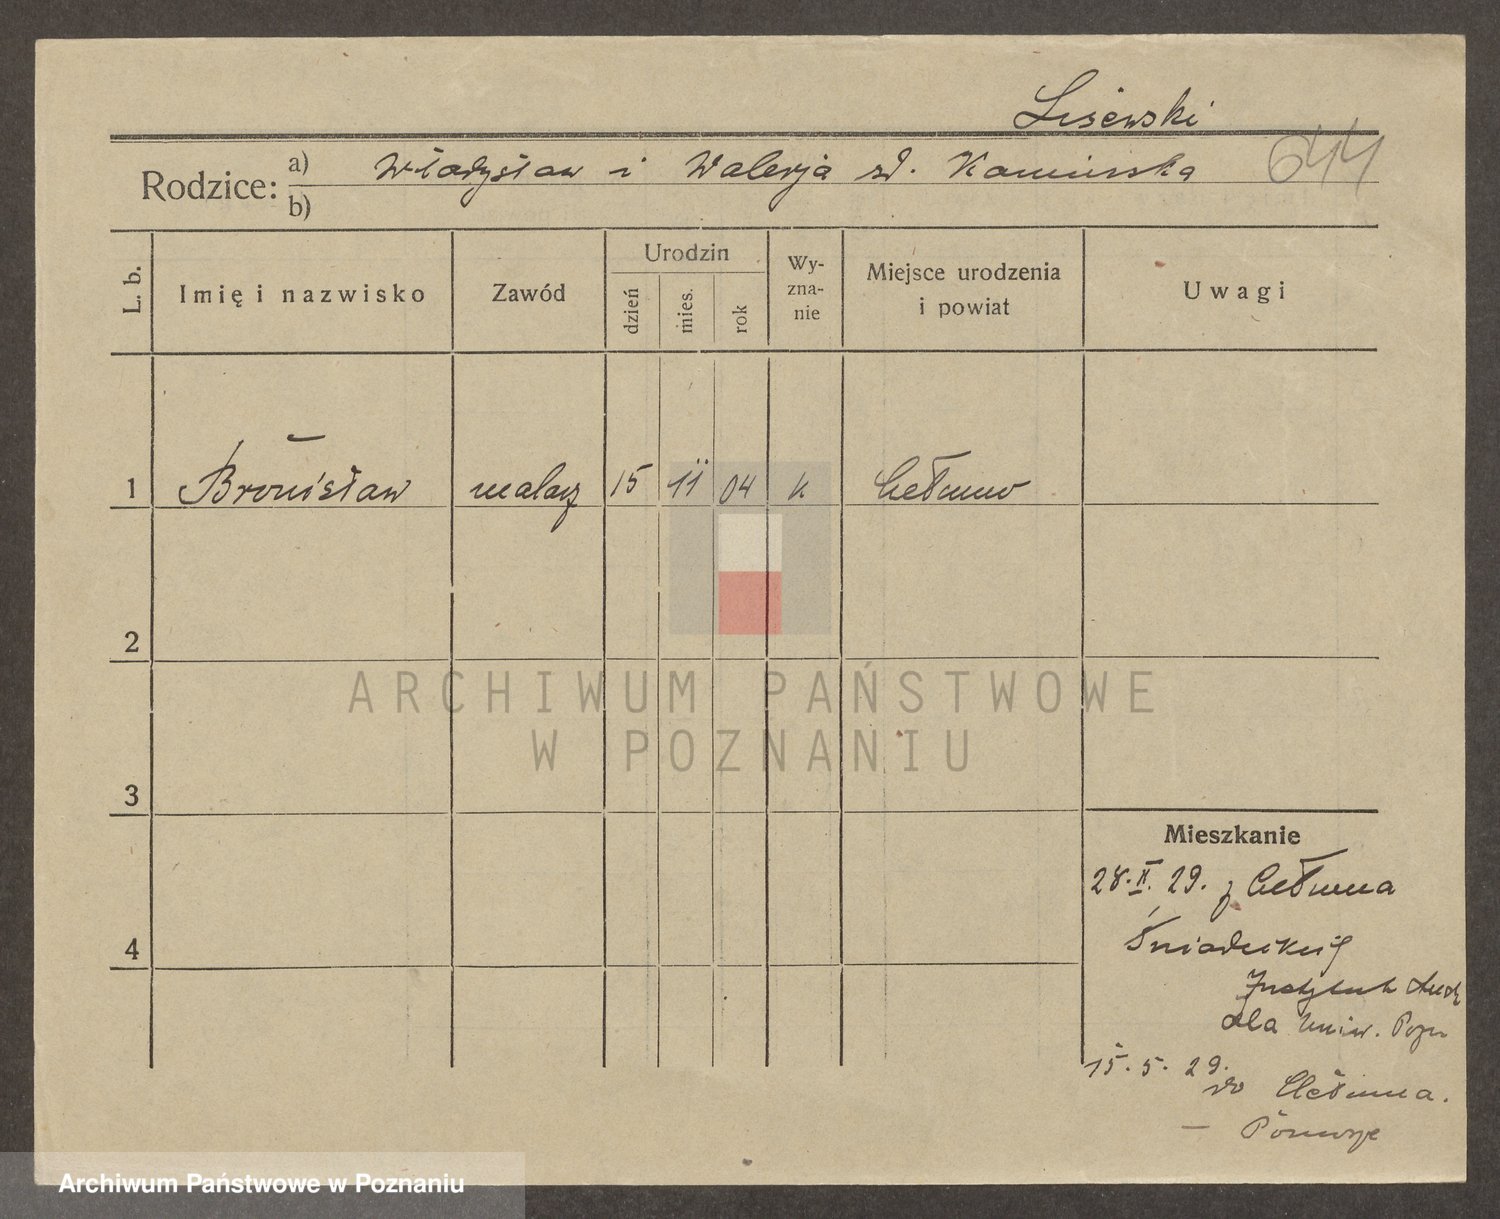 Lisewski
644
Rodzice: a) Władysław i Walerja zd. Kamińska
b)
L. b.
Imię i nazwisko
Zawód
Urodzin
dzień
mies.
rok
Wy-
zna-
nie
Miejsce urodzenia
i powiat
Uwagi
1 Bronisław malarz 15 11 04 k Chełmno
2
3
4
Mieszkanie
28.II.29. z Chełmna
Śniadeckich
Instytut
dla Uniw. Pozn
15.5.29.
do Chełmna.
– Pomorze
ARCHIWUM PAŃSTWOWE
W POZNANIU
Archiwum Państwowe w Poznaniu